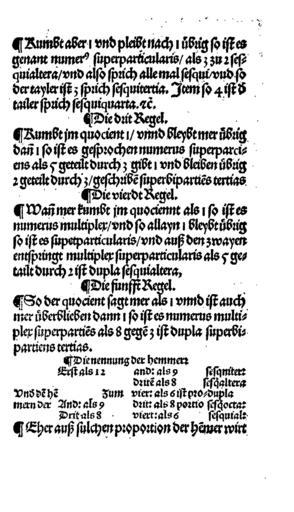 ¶ Kumbt aber 1 vnd pleibt nach 1 übrig so ist es
genant numerꝰ superparticularis/ als 3 zu 2 ses-
quialtera/vnd also sprich alle mal sesqui/vnd so
der tayler ist 3 sprich sesquitertia. Item so 4 ist ď
tailer sprich sesquiquarta.⁊c.
¶ Die drit Regel.
¶ Kumbt im quocient 1/ vnnd bleybt mer übrig
dañ 1 so ist es gesprochen numerus superparci-
ens als 5 geteilt durch 3 gibt 1 vnd bleiben übrig
2 geteilt durch 3/geschribẽ superbipartiẽs tertias
¶ Die vierdt Regel.
¶ Wañ mer kumbt im quociennt als 1 so ist es
numerus multiplex/vnd so allayn 1 bleybt übrig
so ist es supetparticularis/vnd auß den zwayen
entspringt multiplex superparticularis als 5 ge-
tailt durch 2 ist dupla sesquialtera,
¶ Die funfft Regel.
¶ So der quocient sagt mer als 1 vnnd ist auch
mer überblieben dann 1 so ist es numerus multi-
plex superpartiẽs als 8 gegẽ 3 ist dupla superbi-
partiens tertias.
¶ Die nennung der hemmerː
Erst als 12 and: als 9 sesquitert
dritẽ als 8 sesq̃altera
Vnd dẽ hẽ zum vier: als 6 ist pro/dupla
mern der And: als 9 drit: als 8 portio sesq̃octav
Drit als 8 vier: als 6 sesquialt
¶ Eher auß sulchen proportion der hẽmer wirt